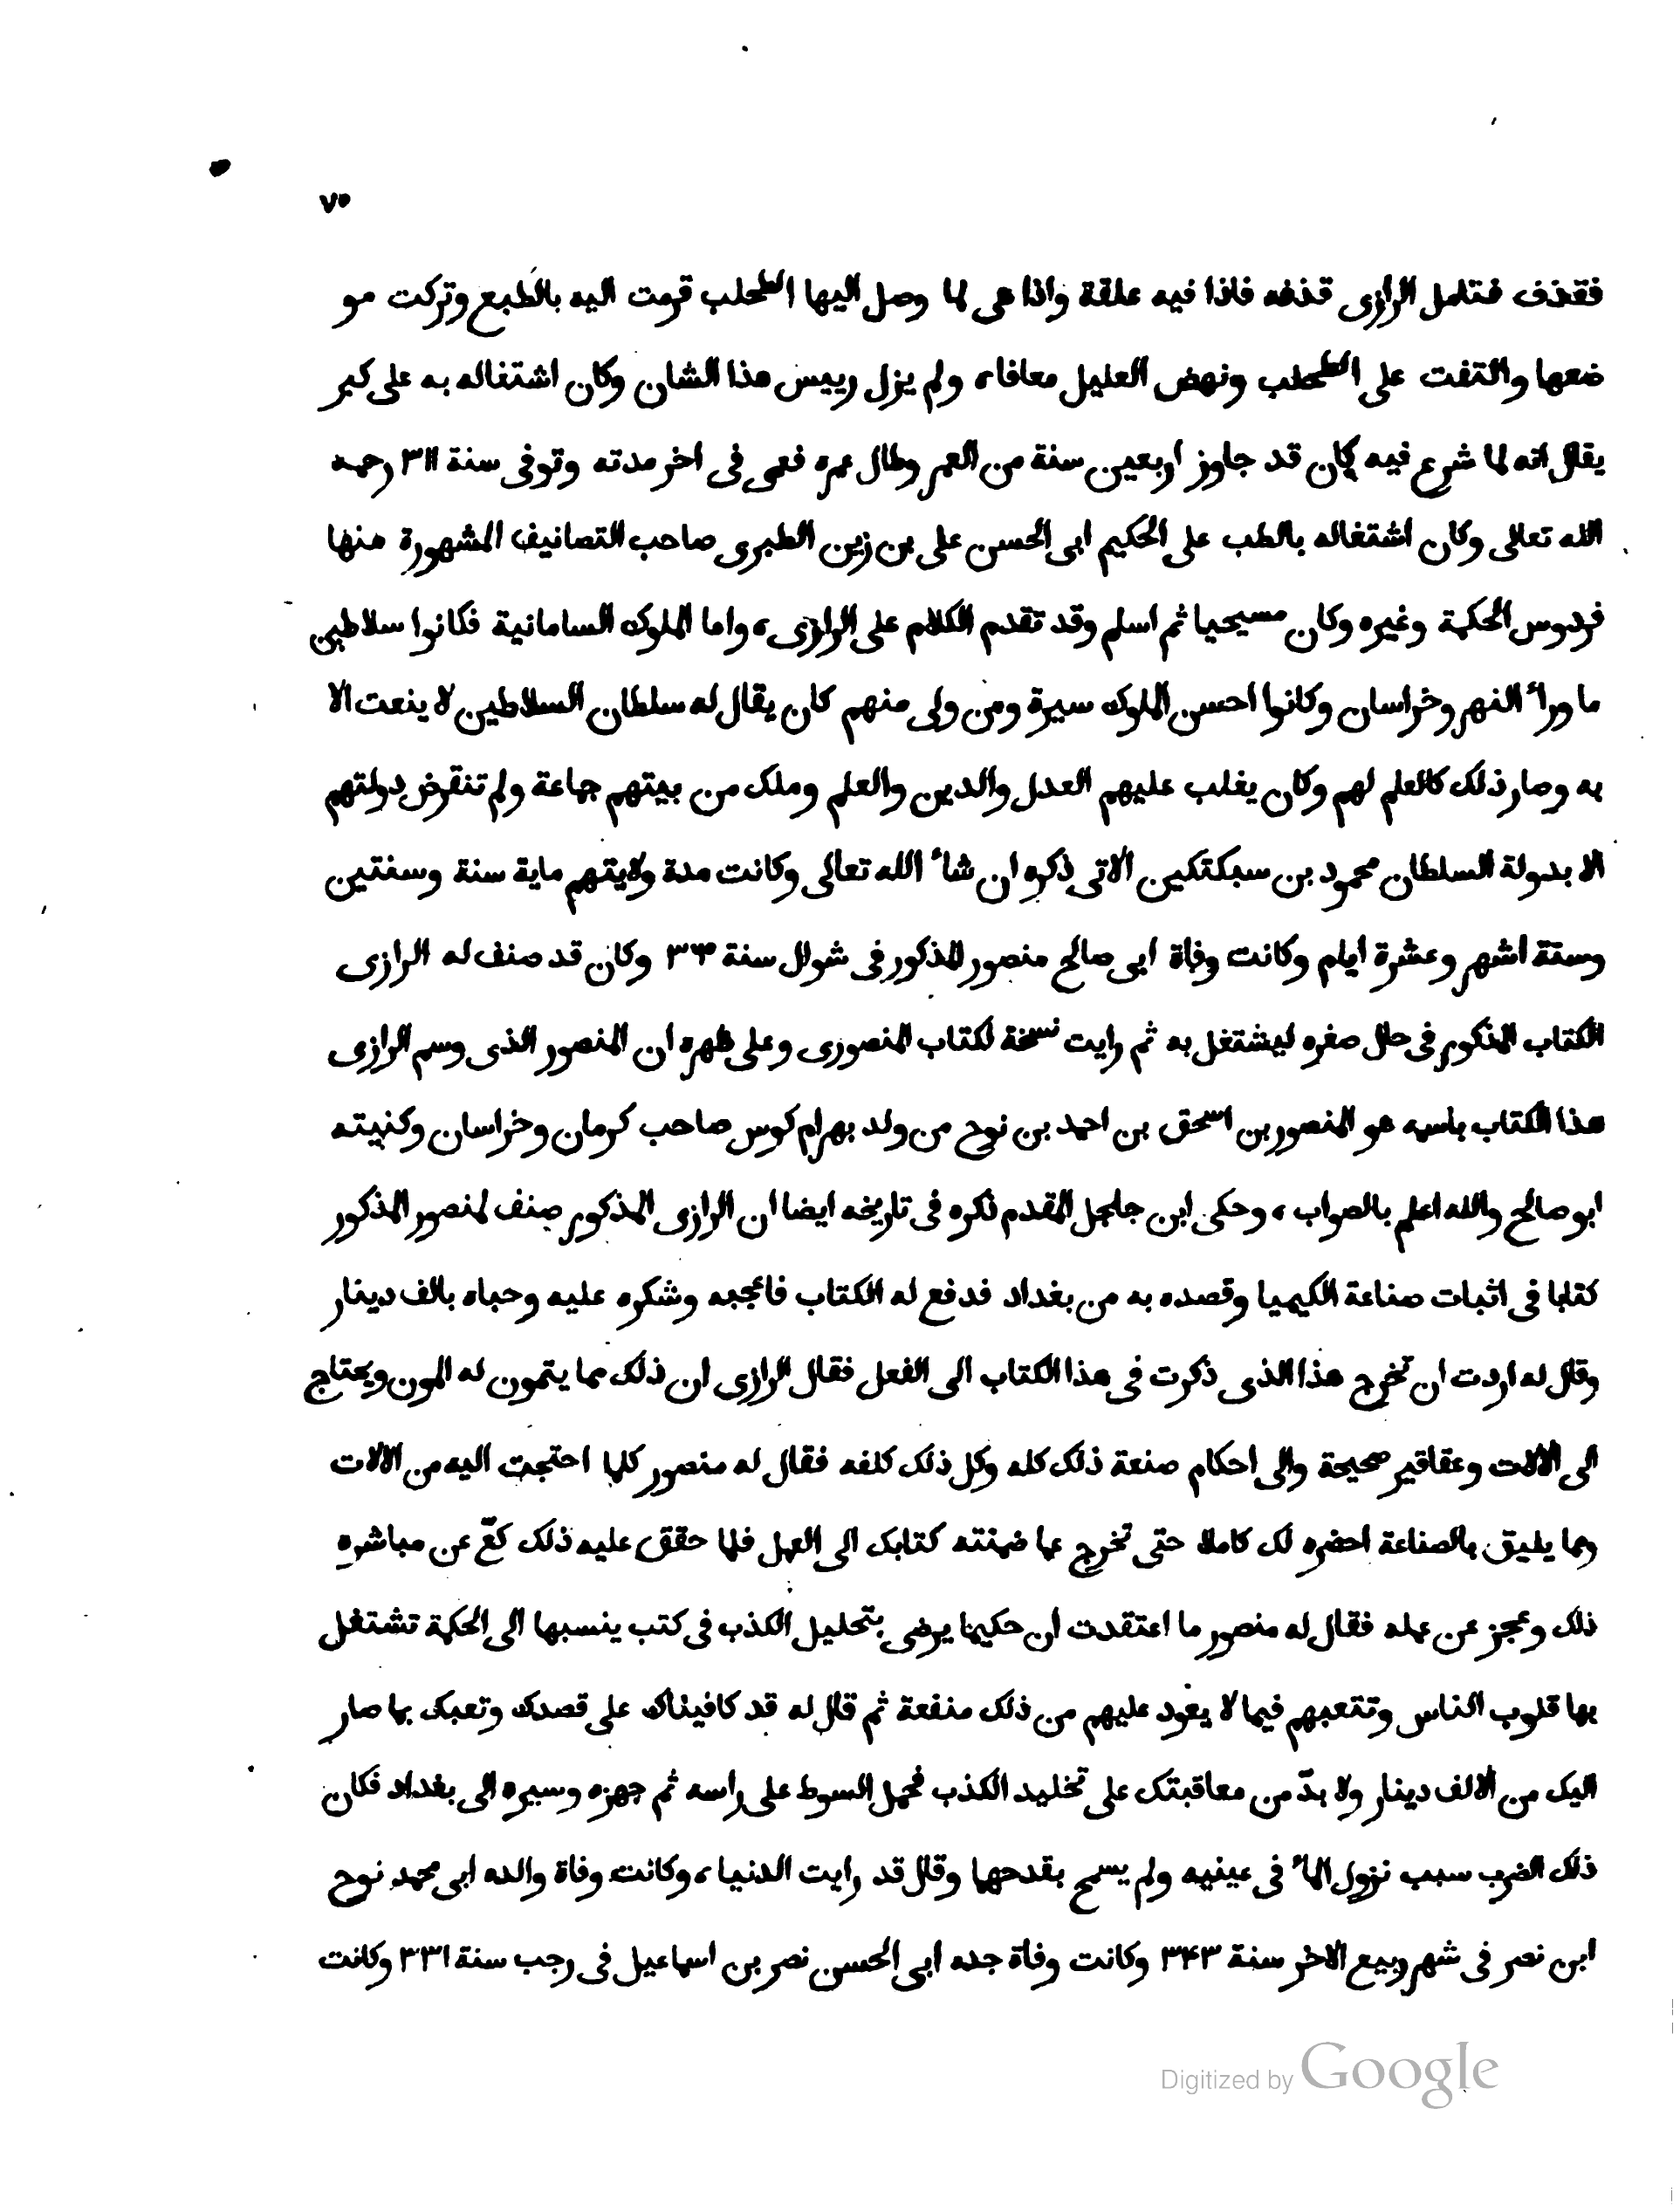 ٧٥
فقذف فتامل الرازى قذفه فاذا فيه علقة واذا هى لما وصل اليها الطحلب قرمت اليه بالطبع وتركت مو
ضعها والتفت على الطحلب ونهض العليل معافاء ولم يزل رييس هذا الشان وكان اشتغاله به على كبر
يقال انه لما شرع فيه كان قد جاوز اربعين سنة من العمر وطال عمره فعمى فى اخر مدته وتوفى سنة ٣١١ رحمه
الله تعالى وكان اشتغاله بالطب على الحكيم ابى الحسن على بن زين الطبرى صاحب التصانيف المشهورة منها
فردوس الحكمة وغيره وكان مسيحيا ثم اسلم وقد تقدم الكلام على الرازى، واما الملوك السامانية فكانوا سلاطين
ما وراء النهر وخراسان وكانوا احسن الملوك سيرة ومن ولى منهم كان يقال له سلطان السلاطين لا ينعت الا
به وصار ذلك كالعلم لهم وكان يغلب عليهم العدل والدين والعلم وملك من بيتهم جماعة ولم تنقرض دولتهم
الا بدولة السلطان محمود بن سبكتكين الاتى ذكره ان شاء الله تعالى وكانت مدة ولايتهم ماية سنة وسنتين
وستة اشهر وعشرة ايام وكانت وفاة ابى صالح منصور المذكور فى شوال سنة وكان قد صنف له الرازى
الكتاب المذكور فى حال صغره ليشتغل به ثم رايت نسخة لكتاب المنصورى وعلى ظهره ان المنصور الذى وسم الرازى
هذا الكتاب باسمه هو المنصور بن اسحق بن احمد بن نوح من ولد بهرام كوس صاحب كرمان وخراسان وكنيته
ابو صالح والله اعلم بالصواب، وحكى ابن جلجل المقدم ذكره فى تاريخه ايضا ان الرازى المذكور صنف لمنصور المذكور
كتابا فى اثبات صناعة الكيميا وقصده به من بغداد فدفع له الكتاب فاعجبه وشكره عليه وحباه بالف دينار
وقال له اردت ان تخرج هذا الذى ذكرت فى هذا الكتاب الى الفعل فقال الرازى ان ذلك مما يتمون له المون ويحتاج
الى الالات وعقاقير صحيحة والى احكام صنعة ذلك كله وكل ذلك كلفه فقال له منصور كلما احتجت اليه من الالات
ومما يليق بالصناعة احضره لك كاملا حتى تخرج عما ضمنته كتابك الى العمل فلما حقق عليه ذلك كعّ عن مباشره
ذلك وعجز عن عمله فقال له منصور ما اعتقدت ان حكيما يرضى بتحليل الكذب فى كتب ينسبها الى الحكمة تشتغل
بها قلوب الناس وتتعبهم فيما لا يعود عليهم من ذلك منفعة ثم قال له قد كافيناك على قصدك وتعبك بما صار
اليك من الالف دينار ولا بدّ من معاقبتك على تخليد الكذب فحمل السوط على راسه ثم جهزه وسيره الى بغداد فكان
ذلك الضرب سبب نزول الماء فى عينيه ولم يسمح بقدحهما وقال قد رايت الدنيا، وكانت وفاة والده ابى محمد نوح
ابن نصر فى شهر ربيع الاخر سنة ٣٤٣ وكانت وفاة جده ابى الحسن نصر بن اسماعيل فى رجب سنة ٣٣١ وكانت
Digitized by Google